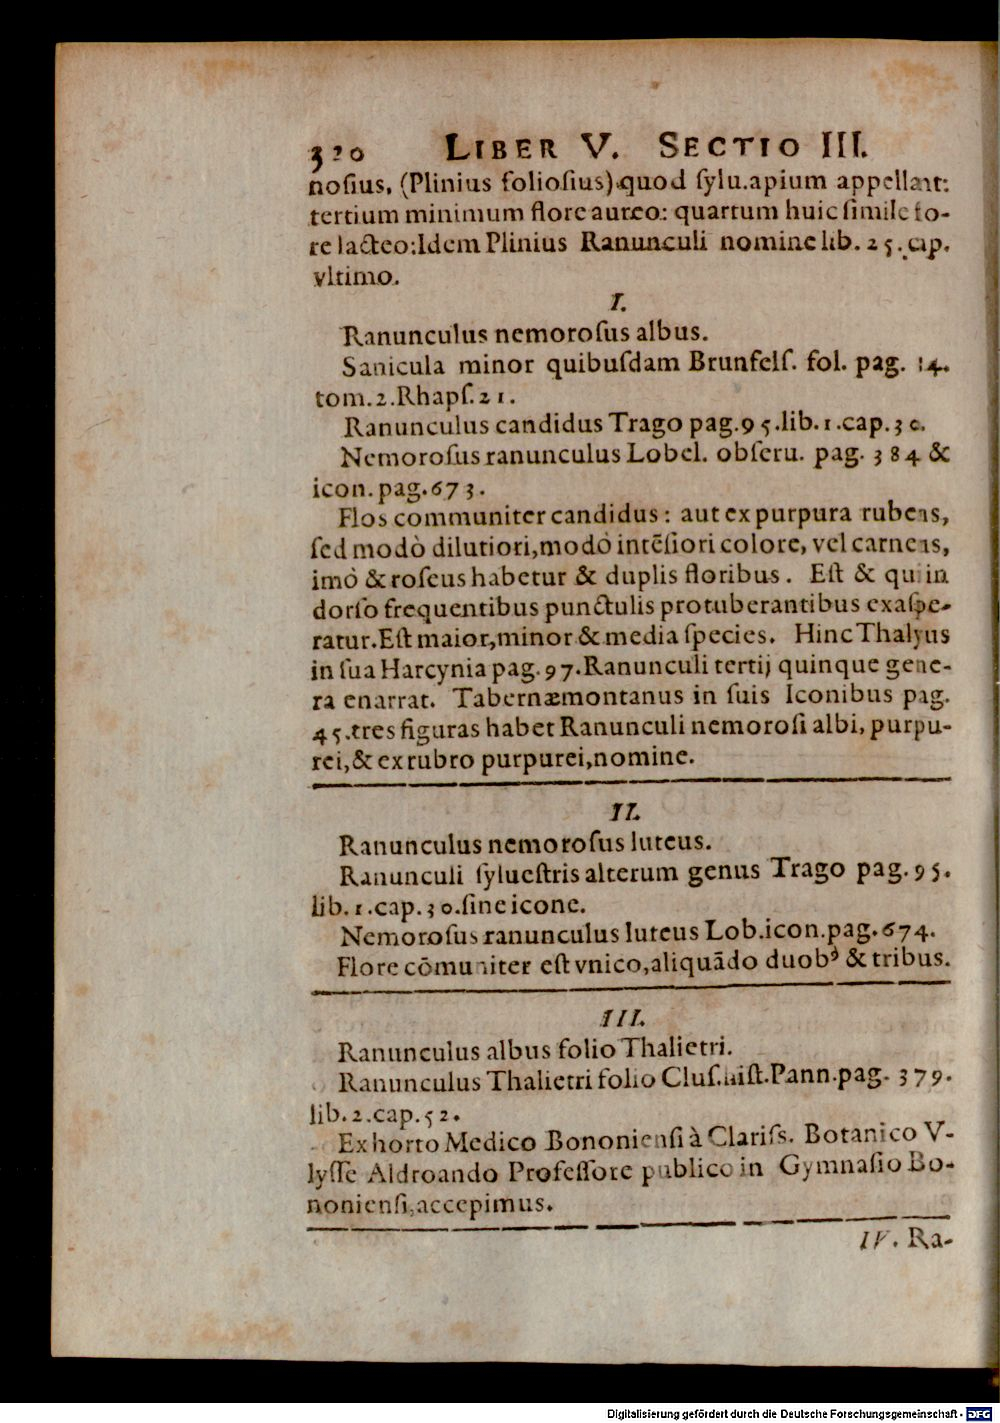 320 LIBER V. SECTIO III.
nosius, (Plinius foliosius) quod sylu.apium appellant:
tertium minimum flore aureo: quartum huic simile flo-
re lacteo:Idem Plinius Ranunculi nomine lib. 25. cap.
vltimo.
I.
Ranunculus nemorosus albus.
Sanicula minor quibusdam Brunfels. fol. pag. 14.
tom.2.Rhaps.21.
Ranunculus candidus Trago pag.95.lib.1.cap.30.
Nemorosus ranunculus Lobel. obseru. pag. 384 &
icon.pag.673.
Flos communiter candidus: aut ex purpura rubens,
sed modò dilutiori,modò intēsiori colore, vel carneus,
imò & roseus habetur & duplis floribus. Est & qui in
dorso frequentibus punctulis protuberantibus exaspe-
ratur.Est maior,minor & media species. Hinc Thalius
in sua Harcynia pag.97.Ranunculi tertij quinque gene-
ra enarrat. Tabernæmontanus in suis Iconibus pag.
45.tres figuras habet Ranunculi nemorosi albi, purpu-
rei,& ex rubro purpurei,nomine.
II.
Ranunculus nemorosus luteus.
Ranunculi syluestris alterum genus Trago pag.95.
lib.1.cap.30.sine icone.
Nemorosus ranunculus luteus Lob.icon.pag.674.
Flore cōmuniter est vnico,aliquādo duobꝰ & tribus.
III.
Ranunculus albus folio Thalietri.
Ranunculus Thalietri folio Clus.hist.Pann.pag. 379.
lib.2.cap.52.
Ex horto Medico Bononiensi à Clariss. Botanico V-
lysse Aldroando Professore publico in Gymnasio Bo-
noniensi,accepimus.
IV. Ra-
Digitalisierung gefördert durch die Deutsche Forschungsgemeinschaft - DFG